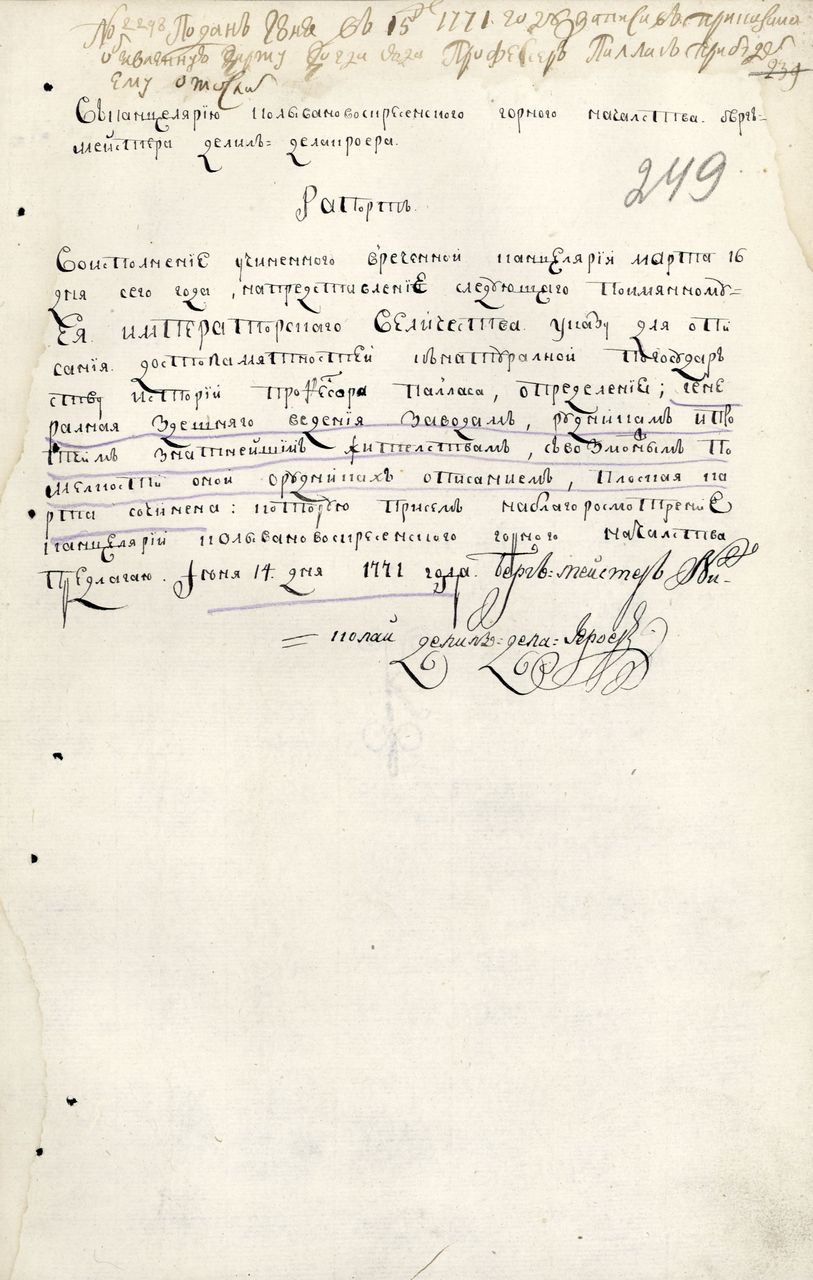 № 2298 Поданъ Июня въ 15 д 1771 году записавъ приказали
объявленную карту когда сюда Профессоръ Палласъ прибудетъ
ему отдать
239
Въ канцелярию колывановоскресенского горного началства. бергъ=
мейстера
249
Рапортъ.
Воисполненiе учиненного вреченной канцелярiи марта 16
дня сего года, напредставленiе следующаго Поимянному=
Ея императорскаго Величества указу для опи
санiя достопамятностей кънатуралной въгосудар
ству исторiй профессора палласа, определенiе; гене
ралная здешняго веденiя заводамъ, рудникамъ ипро
тчимъ знатнейшiмъ жителствамъ, съвозможнымъ по
мелкости оной орудникахъ описанiемъ, плоская ка
рта сочинена: которую присемъ наблагоросмотренiе
канцелярiй колывановоскресенского горного началства
Предлагаю. Iюня 14. дня 1771 года. Бергъ=мейстеръ Ни=
= колай